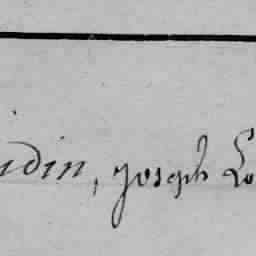 idin, joseph Lo